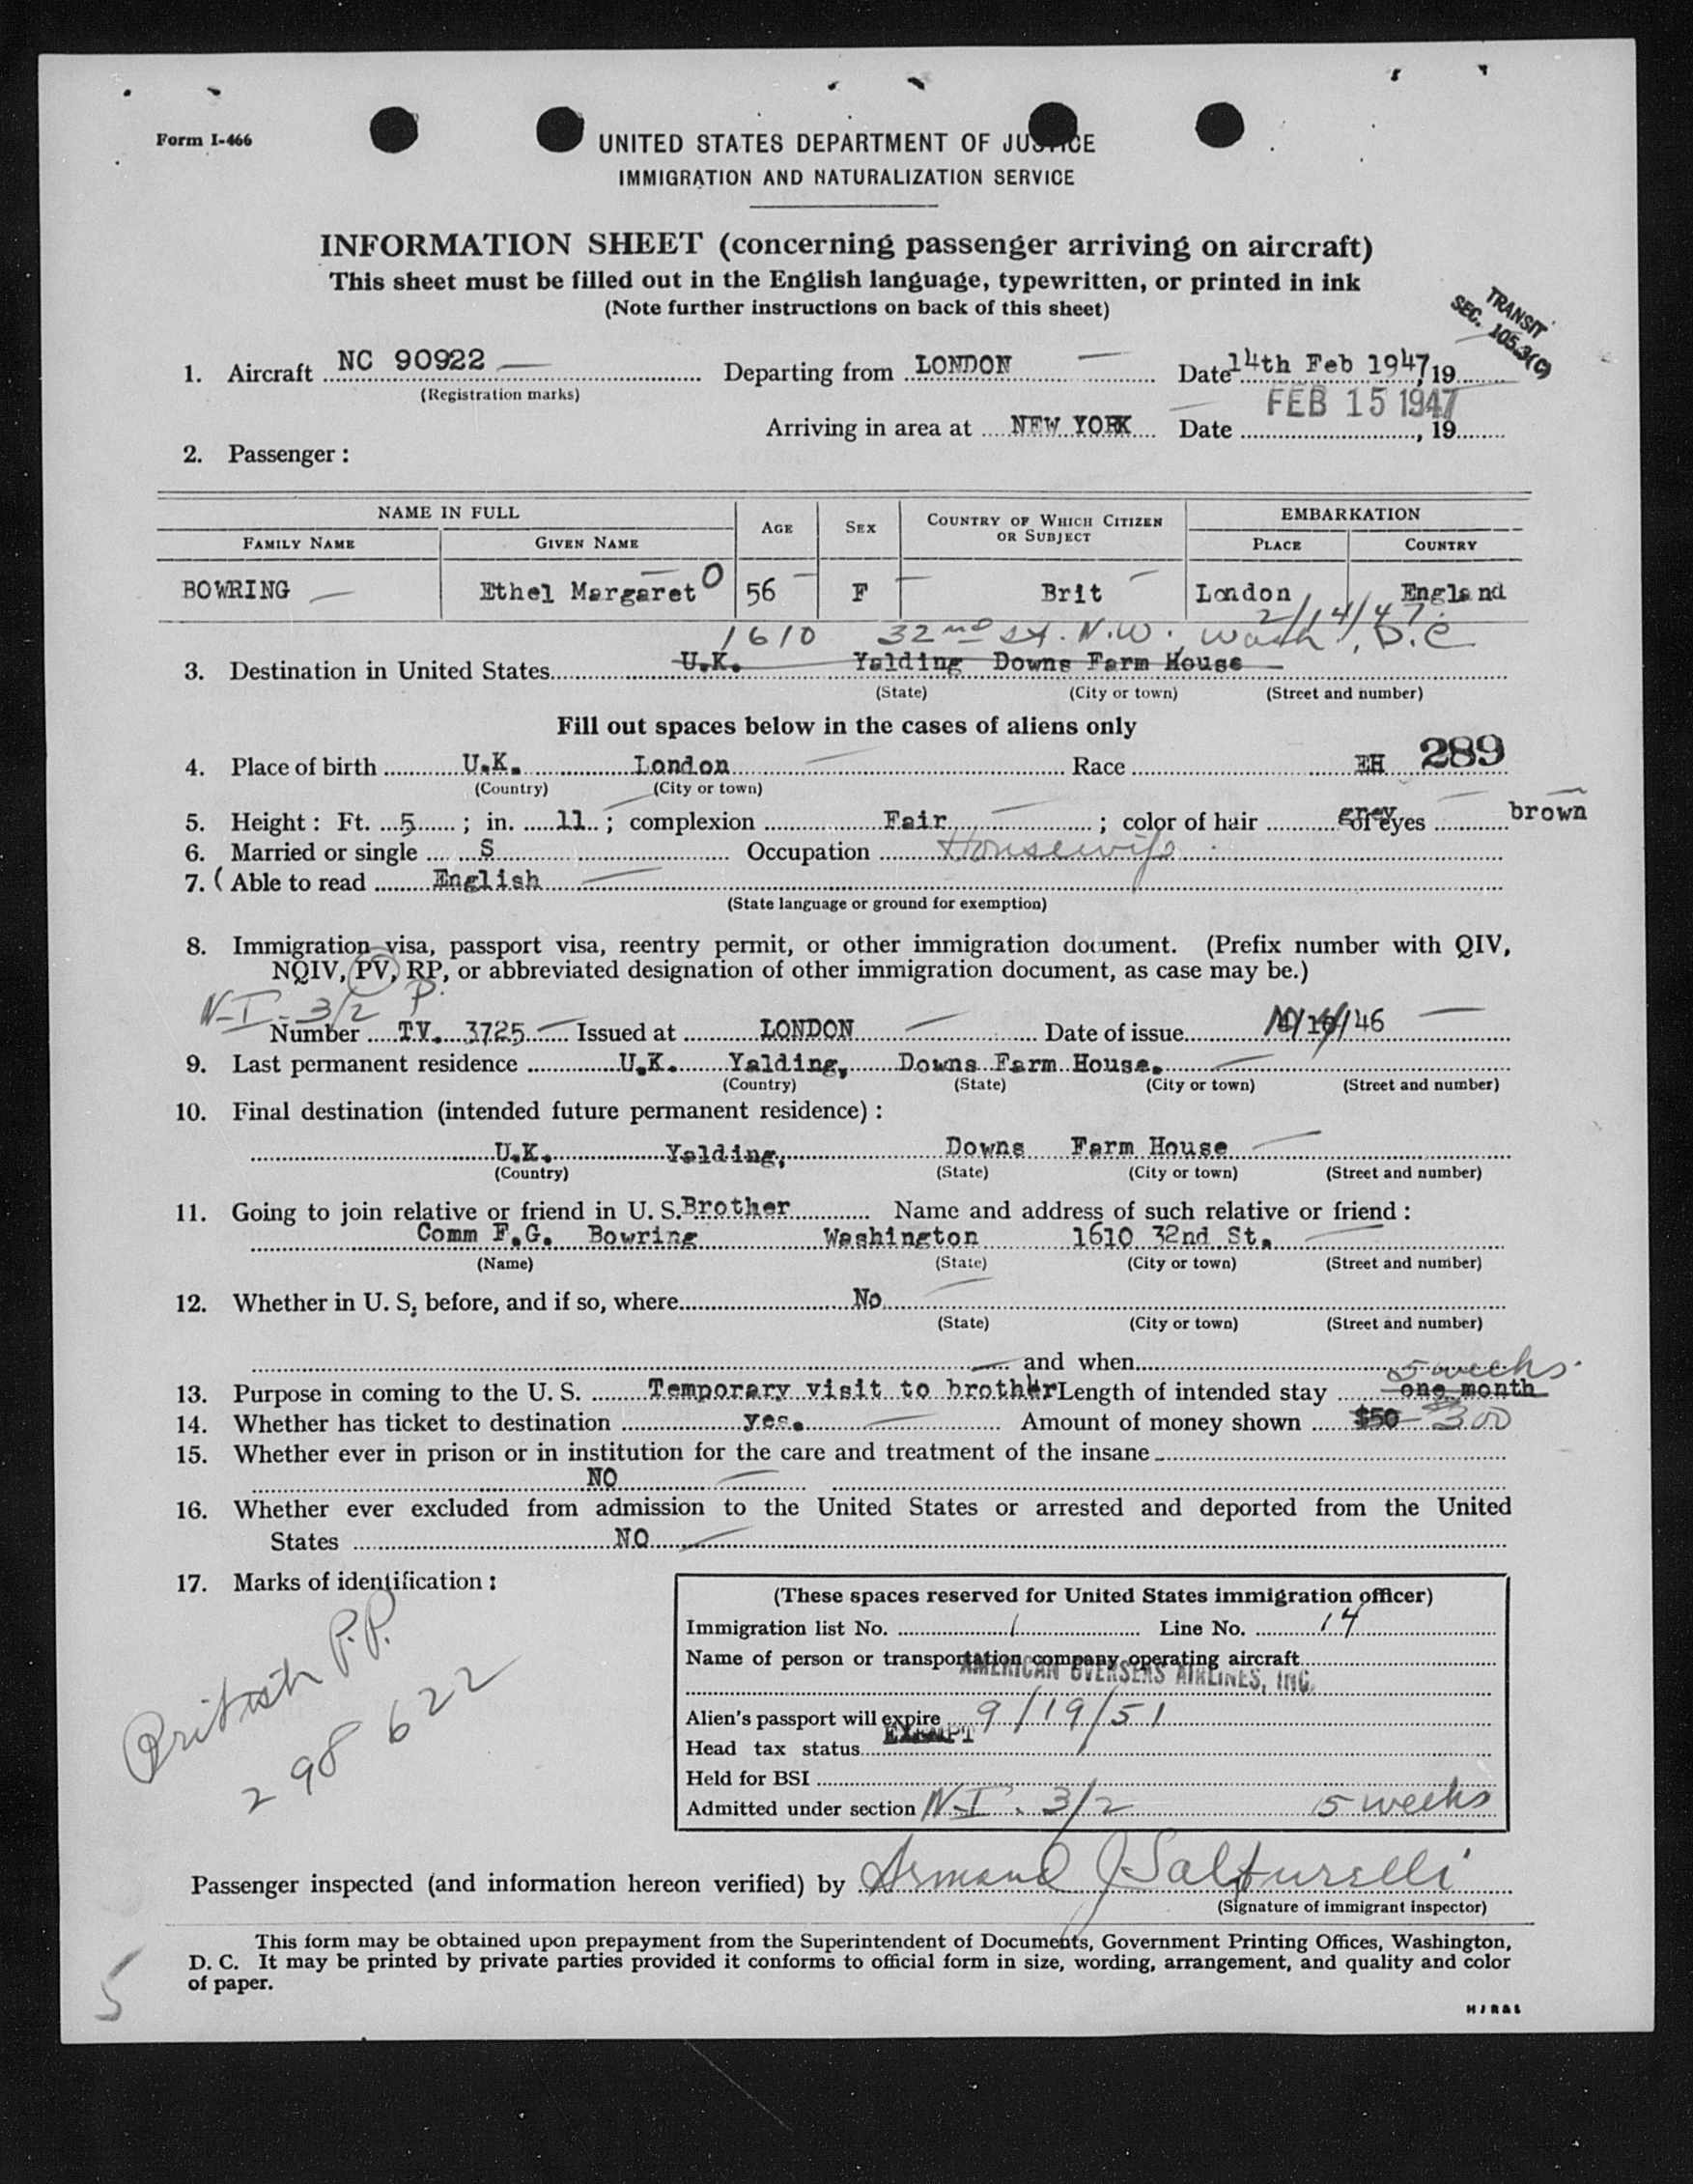 Form I-466
UNITED STATES DEPARTMENT OF JUSTICE
IMMIGRATION AND NATURALIZATION SERVICE
INFORMATION SHEET (concerning passenger arriving on aircraft)
This sheet must be filled out in the English language, typewritten, or printed in ink
(Note further instructions on back of this sheet)
TRANSIT
SEC. 105.3(C)
1. Aircraft NC 90922 Departing from LONDON Date 14th Feb 1947, 19
(Registration marks)
FEB 15 1947
Arriving in area at NEW YORK Date , 19
2. Passenger:
NAME IN FULL AGE SEX COUNTRY OF WHICH CITIZEN OR SUBJECT EMBARKATION
FAMILY NAME GIVEN NAME PLACE COUNTRY
BOWRING Ethel Margaret O 56 F Brit London England
2/14/47
1610 32nd St. N.W., Wash, D.C
3. Destination in United States U.K. Yalding Downs Farm House
(State) (City or town) (Street and number)
Fill out spaces below in the cases of aliens only
4. Place of birth U.K. London Race EH 289
(Country) (City or town)
5. Height: Ft. 5 ; in. 11 ; complexion Fair ; color of hair grey of eyes brown
6. Married or single S Occupation Housewife
7. ( Able to read English
(State language or ground for exemption)
8. Immigration visa, passport visa, reentry permit, or other immigration document. (Prefix number with QIV,
NQIV, PV, RP, or abbreviated designation of other immigration document, as case may be.)
N-I-3/2 P.
Number T.V. 3725 Issued at LONDON Date of issue /46
9. Last permanent residence U.K. Yalding, Downs Farm House.
(Country) (State) (City or town) (Street and number)
10. Final destination (intended future permanent residence):
U.K. Yalding, Downs Farm House
(Country) (State) (City or town) (Street and number)
11. Going to join relative or friend in U. S. Brother Name and address of such relative or friend:
Comm F.G. Bowring Washington 1610 32nd St.
(Name) (State) (City or town) (Street and number)
12. Whether in U. S. before, and if so, where No
(State) (City or town) (Street and number)
and when
5 weeks.
13. Purpose in coming to the U. S. Temporary visit to brother Length of intended stay one month
14. Whether has ticket to destination yes. Amount of money shown $50 $300
15. Whether ever in prison or in institution for the care and treatment of the insane
NO
16. Whether ever excluded from admission to the United States or arrested and deported from the United
States NO
17. Marks of identification:
British P.P.
298622
(These spaces reserved for United States immigration officer)
Immigration list No. 1 Line No. 14
Name of person or transportation company operating aircraft
AMERICAN OVERSEAS AIRLINES, INC.
Alien's passport will expire 9/19/51
Head tax status EXEMPT
Held for BSI
Admitted under section N-I. 3/2 5 weeks
Passenger inspected (and information hereon verified) by Armand J Salturelli
(Signature of immigrant inspector)
This form may be obtained upon prepayment from the Superintendent of Documents, Government Printing Offices, Washington,
D. C. It may be printed by private parties provided it conforms to official form in size, wording, arrangement, and quality and color
of paper.
5